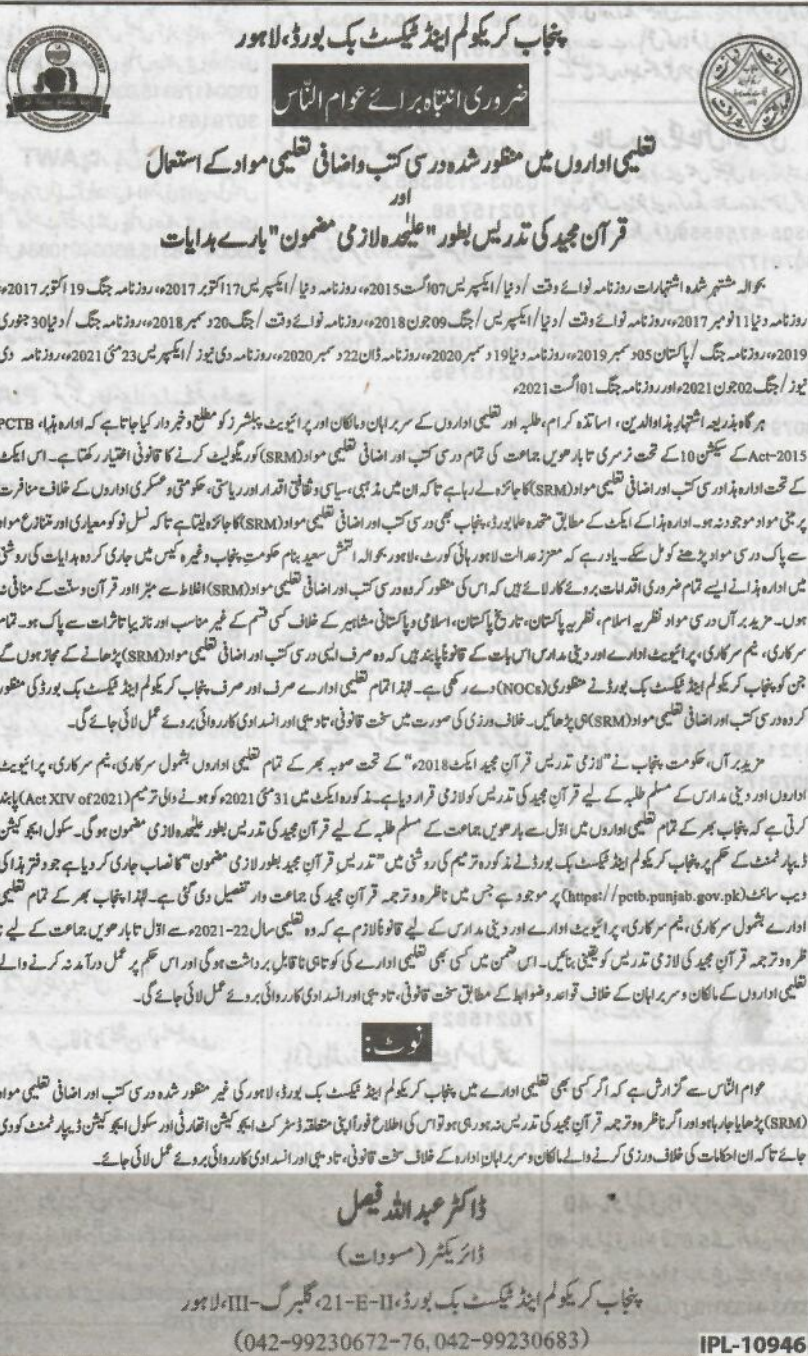 پنجاب کریکولم اینڈ ٹیکسٹ بک بورڈ، لاہور
ضروری انتباہ برائے عوام النّاس
تعلیمی اداروں میں منظور شدہ درسی کتب و اضافی تعلیمی مواد کے استعمال
اور
قرآن مجید کی تدریس بطور "علیٰحدہ لازمی مضمون" بارے ہدایات
بحوالہ مشتہر شدہ اشتہارات روزنامہ نوائے وقت / دنیا / ایکسپریس 07 اگست 2015ء، روزنامہ دنیا / ایکسپریس 17 اکتوبر 2017ء، روزنامہ جنگ 19 اکتوبر 2017ء،
روزنامہ دنیا 11 نومبر 2017ء، روزنامہ نوائے وقت / دنیا / ایکسپریس / جنگ 09 جون 2018ء، روزنامہ نوائے وقت / جنگ 20 دسمبر 2018ء، روزنامہ جنگ / دنیا 30 جنوری
2019ء، روزنامہ جنگ / پاکستان 05 دسمبر 2019ء، روزنامہ دنیا 19 دسمبر 2020ء، روزنامہ ڈان 22 دسمبر 2020ء، روزنامہ دی نیوز / ایکسپریس 23 مئی 2021ء، روزنامہ دی
نیوز / جنگ 02 جون 2021ء اور روزنامہ جنگ 01 اگست 2021ء
ہر گاہ بذریعہ اشتہار ہذا والدین، اساتذہ کرام، طلبہ اور تعلیمی اداروں کے سربراہان و مالکان اور پرائیویٹ پبلشرز کو مطلع و خبردار کیا جاتا ہے کہ ادارہ ہذا، PCTB
Act-2015 کے سیکشن 10 کے تحت نرسری تا بارھویں جماعت کی تمام درسی کتب اور اضافی تعلیمی مواد (SRM) کو ریگولیٹ کرنے کا قانونی اختیار رکھتا ہے۔ اس ایکٹ
کے تحت ادارہ ہذا درسی کتب اور اضافی تعلیمی مواد (SRM) کا جائزہ لے رہا ہے تاکہ ان میں مذہبی، سیاسی و ثقافتی اقدار اور ریاستی، حکومتی و عسکری اداروں کے خلاف منافرت
پر مبنی مواد موجود نہ ہو۔ ادارہ ہذا کے ایکٹ کے مطابق متحدہ علما بورڈ، پنجاب بھی درسی کتب اور اضافی تعلیمی مواد (SRM) کا جائزہ لیتا ہے تاکہ نسلِ نو کو معیاری اور متنازع مواد
سے پاک درسی مواد پڑھنے کو مل سکے۔ یاد رہے کہ معزز عدالت لاہور ہائی کورٹ، لاہور بحوالہ التمش سعید بنام حکومتِ پنجاب وغیرہ کیس میں جاری کردہ ہدایات کی روشنی
میں ادارہ ہذا نے ایسے تمام ضروری اقدامات بروئے کار لائے ہیں کہ اس کی منظور کردہ درسی کتب اور اضافی تعلیمی مواد (SRM) اغلاط سے مبّرا اور قرآن و سنّت کے منافی نہ
ہوں۔ مزید برآں درسی مواد نظریہ اسلام، نظریہ پاکستان، تاریخِ پاکستان، اسلامی و پاکستانی مشاہیر کے خلاف کسی قسم کے غیر مناسب اور نازیبا تاثرات سے پاک ہو۔ تمام
سرکاری، نیم سرکاری، پرائیویٹ ادارے اور دینی مدارس اس بات کے قانوناً پابند ہیں کہ وہ صرف ایسی درسی کتب اور اضافی تعلیمی مواد (SRM) پڑھانے کے مجاز ہوں گے
جن کو پنجاب کریکولم اینڈ ٹیکسٹ بک بورڈ نے منظوری (NOCs) دے رکھی ہے۔ لہٰذا تمام تعلیمی ادارے صرف اور صرف پنجاب کریکولم اینڈ ٹیکسٹ بک بورڈ کی منظور
کردہ درسی کتب اور اضافی تعلیمی مواد (SRM) ہی پڑھائیں۔ خلاف ورزی کی صورت میں سخت قانونی، تادیبی اور انسدادی کارروائی بروئے عمل لائی جائے گی۔
مزید برآں، حکومت پنجاب نے "لازمی تدریس قرآنِ مجید ایکٹ 2018ء" کے تحت صوبہ بھر کے تمام تعلیمی اداروں بشمول سرکاری، نیم سرکاری، پرائیویٹ
اداروں اور دینی مدارس کے مسلم طلبہ کے لیے قرآنِ مجید کی تدریس کو لازمی قرار دیا ہے۔ مذکورہ ایکٹ میں 31 مئی 2021ء کو ہونے والی ترمیم (Act XIV of 2021) پابند
کرتی ہے کہ پنجاب بھر کے تمام تعلیمی اداروں میں اوّل سے بارھویں جماعت کے مسلم طلبہ کے لیے قرآنِ مجید کی تدریس بطور علیٰحدہ لازمی مضمون ہوگی۔ سکول ایجوکیشن
ڈیپارٹمنٹ کے حکم پر پنجاب کریکولم اینڈ ٹیکسٹ بک بورڈ نے مذکورہ ترمیم کی روشنی میں "تدریسِ قرآنِ مجید بطور لازمی مضمون" کا نصاب جاری کر دیا ہے جو دفتر ہذا کی
ویب سائٹ (https://pctb.punjab.gov.pk) پر موجود ہے جس میں ناظرہ و ترجمہ قرآنِ مجید کی جماعت وار تفصیل دی گئی ہے۔ لہٰذا پنجاب بھر کے تمام تعلیمی
ادارے بشمول سرکاری، نیم سرکاری، پرائیویٹ ادارے اور دینی مدارس کے لیے قانوناً لازم ہے کہ وہ تعلیمی سال 22-2021ء سے اوّل تا بارھویں جماعت کے لیے نا
ظرہ و ترجمہ قرآنِ مجید کی لازمی تدریس کو یقینی بنائیں۔ اس ضمن میں کسی بھی تعلیمی ادارے کی کوتاہی ناقابلِ برداشت ہوگی اور اس حکم پر عمل درآمد نہ کرنے والے
تعلیمی اداروں کے مالکان و سربراہان کے خلاف قواعد و ضوابط کے مطابق سخت قانونی، تادیبی اور انسدادی کارروائی بروئے عمل لائی جائے گی۔
نوٹ:
عوام النّاس سے گزارش ہے کہ اگر کسی بھی تعلیمی ادارے میں پنجاب کریکولم اینڈ ٹیکسٹ بک بورڈ، لاہور کی غیر منظور شدہ درسی کتب اور اضافی تعلیمی مواد
(SRM) پڑھایا جا رہا ہو اور اگر ناظرہ و ترجمہ قرآنِ مجید کی تدریس نہ ہو رہی ہو تو اس کی اطلاع فوراً اپنی متعلقہ ڈسٹرکٹ ایجوکیشن اتھارٹی اور سکول ایجوکیشن ڈیپارٹمنٹ کو دی
جائے تاکہ ان احکامات کی خلاف ورزی کرنے والے مالکان و سربراہانِ ادارہ کے خلاف سخت قانونی، تادیبی اور انسدادی کارروائی بروئے عمل لائی جائے۔
ڈاکٹر عبداللہ فیصل
ڈائریکٹر (مسودات)
پنجاب کریکولم اینڈ ٹیکسٹ بک بورڈ، 21-E-II، گلبرگ-III، لاہور
(042-99230672-76, 042-99230683)
IPL-10946